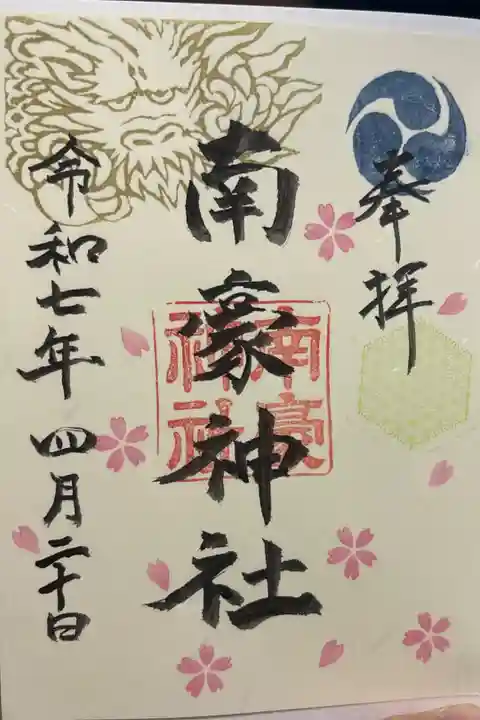 奉拝
南豪神社
南豪
神社
令和七年 四月二十日